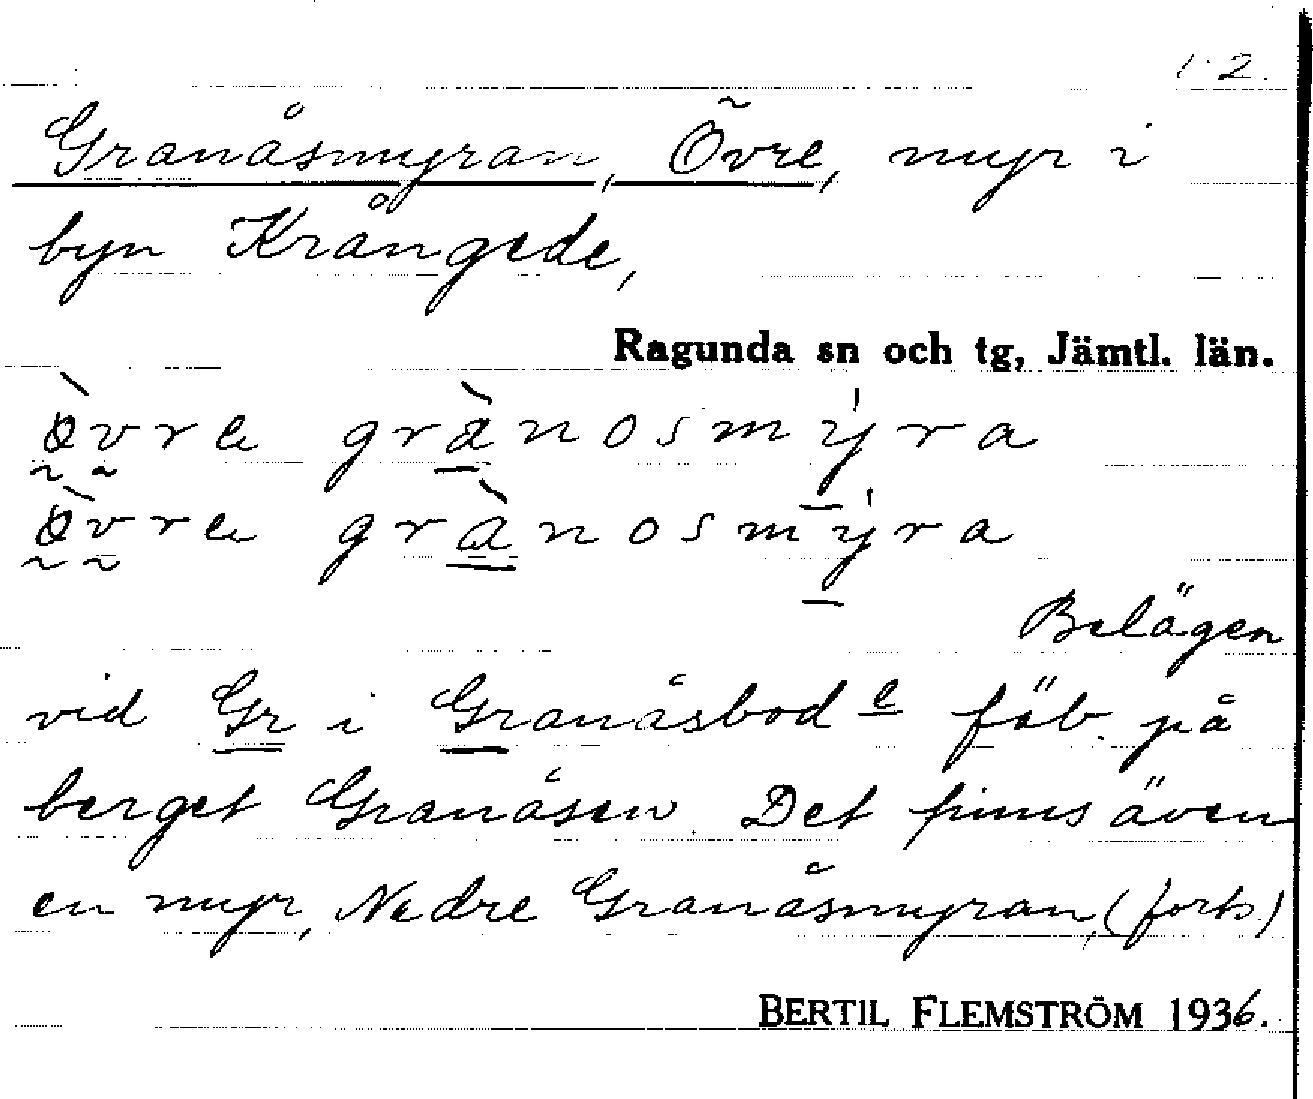 1. 2.
Granåsmyran, Övre, myr i
byn Krångede,
Ragunda sn och tg, Jämtl. län.
òvre grànosmýra
òvre grànosmýra
Belägen
vid Gr i Granåsbode fäb. på
berget Granåsen. Det finns även
en myr, Nedre Granåsmyran, (forts)
BERTIL FLEMSTRÖM 1936.